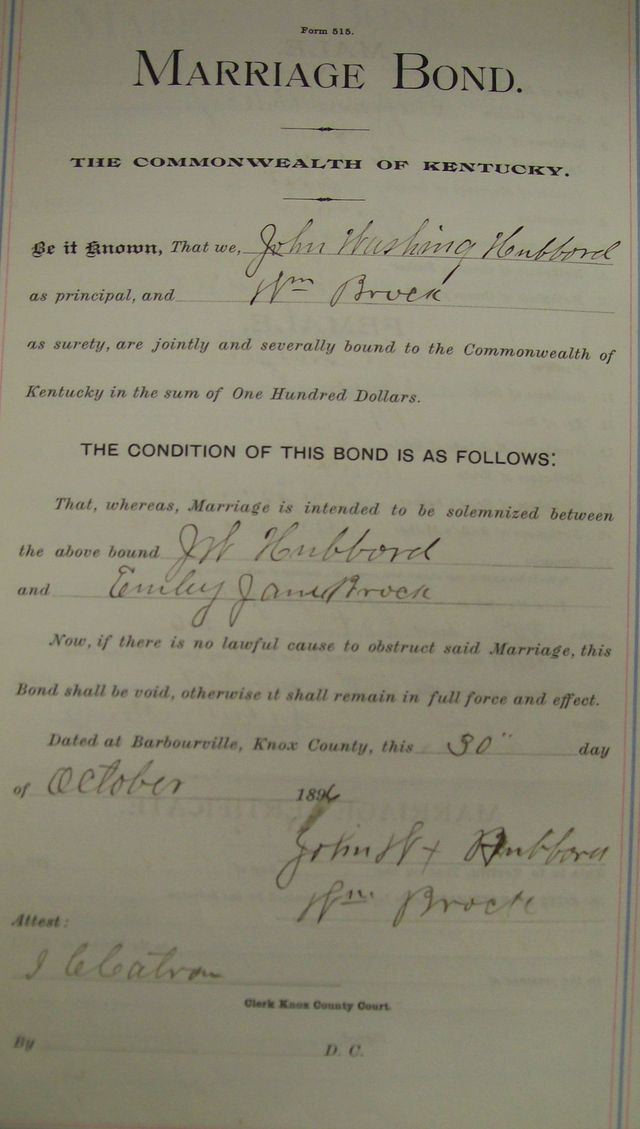 Form 515.
MARRIAGE BOND.
THE COMMONWEALTH OF KENTUCKY.
Be it Known, That we, John Washing Hubbord
as principal, and Wm Brock
as surety, are jointly and severally bound to the Commonwealth of
Kentucky in the sum of One Hundred Dollars.
THE CONDITION OF THIS BOND IS AS FOLLOWS:
That, whereas, Marriage is intended to be solemnized between
the above bound JW Hubbord
and Emley Jane Brock
Now, if there is no lawful cause to obstruct said Marriage, this
Bond shall be void, otherwise it shall remain in full force and effect.
Dated at Barbourville, Knox County, this 30" day
of October 1896
John W x Hubbord
Wm. Brock
Attest:
Catron
Clerk Knox County Court.
By D. C.